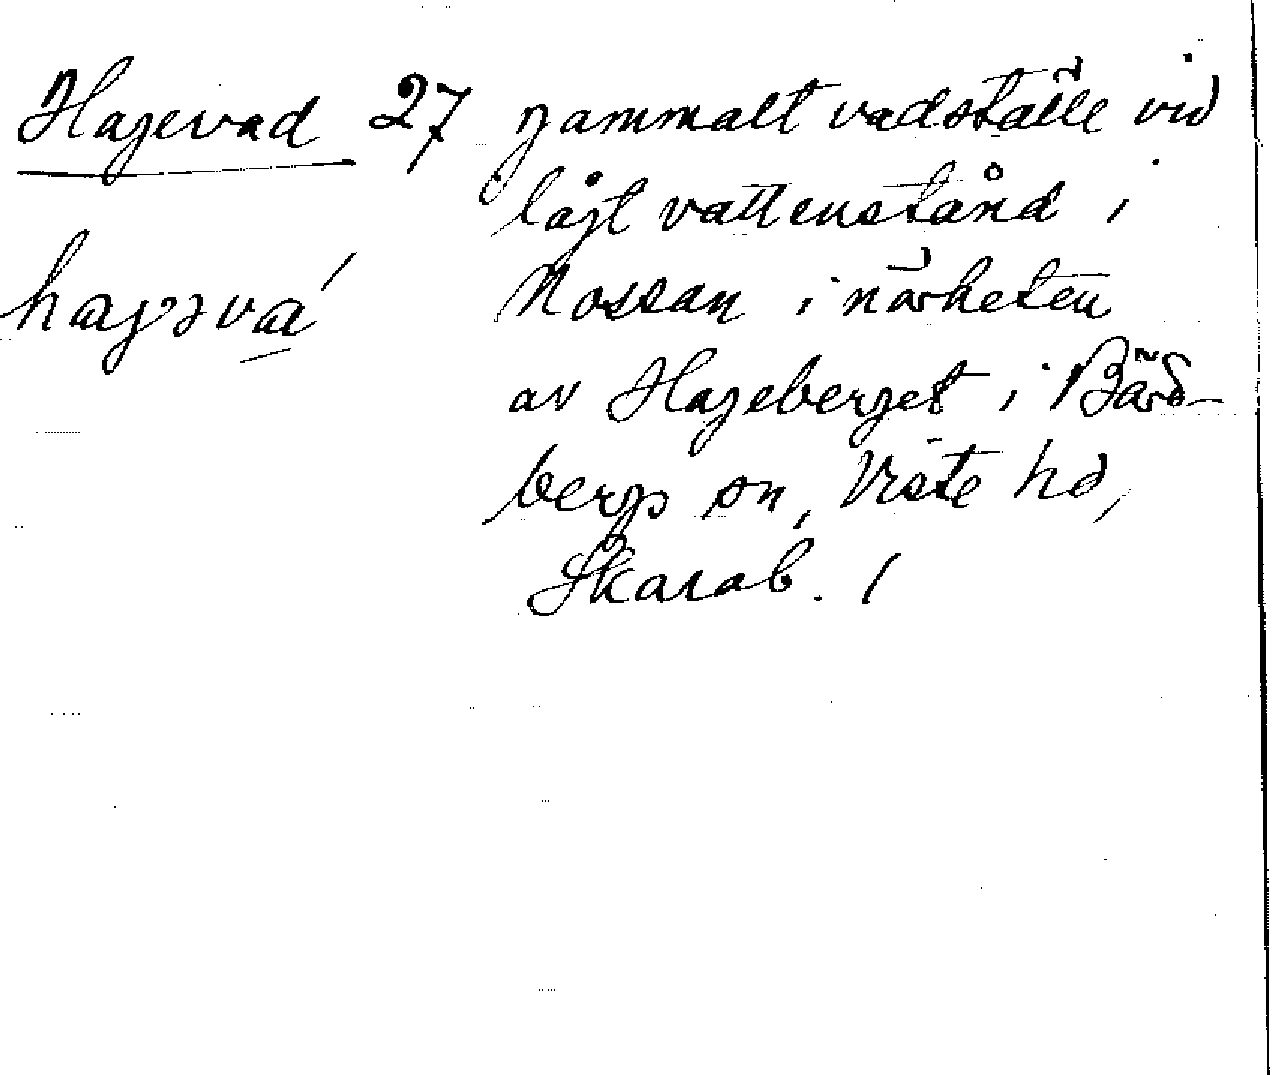 Hagevad 27 gammalt vadställe vid
lågt vattenstånd i
hagəvá Nossan i närheten
av Hageberget i Bärs-
bergs sn, Viste hd,
Skarab. l